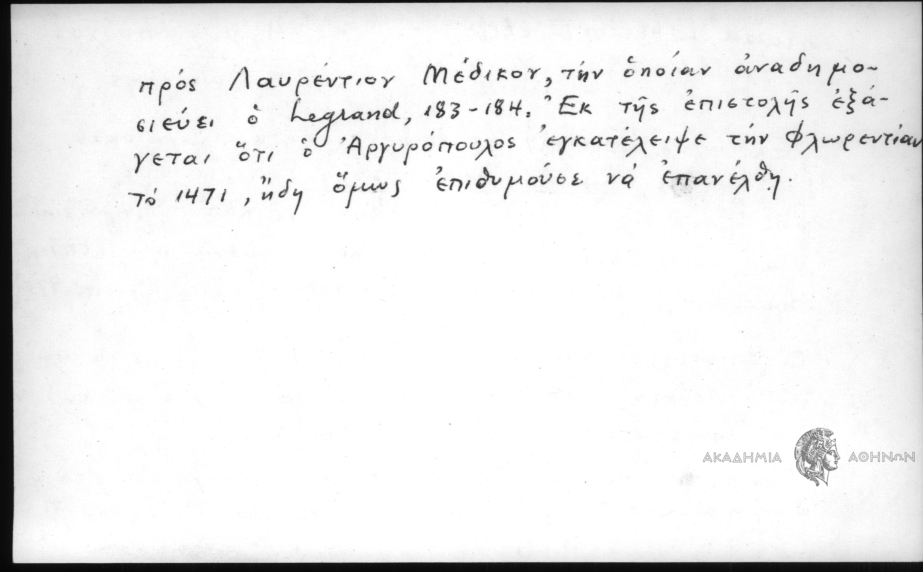 πρός Λαυρέντιον Μέδικον, τήν ὁποίαν ἀναδημο-
σιεύει ὁ Legrand, 183-184. Ἐκ τῆς ἐπιστολῆς ἐξά-
γεται ὅτι ὁ Ἀργυρόπουλος ἐγκατέλειψε τήν Φλωρεντίαν
τό 1471, ἤδη ὅμως ἐπιθυμοῦσε νά ἐπανέλθῃ.
ΑΚΑΔΗΜΙΑ ΑΘΗΝΩΝ